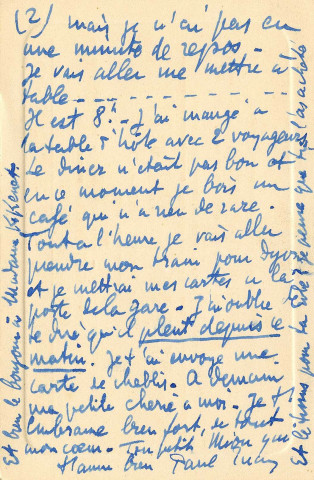 (2) mais je n'ai pas eu
une minute de repos.
Je vais aller me mettre à
table - - - - - - - - - -
Il est 8h. J'ai mangé a
la table d'hôte avec 2 voyageurs
Le diner n'était pas bon et
en ce moment je bois un
café qui n'a rien de rare.
Tout a l'heure je vais aller
prendre mon train pour Dijon
et je mettrai mes cartes a la
poste de la gare. J'ai oublié de
te dire qu'il pleut depuis ce
matin. Je t'ai envoyé une
carte de Chablis. A demain
ma petite cherie a moi. Je t'
embrasse bien fort, de tout
mon cœur. Ton petit qui
t'aime bien Paul
Et bien le bonjour à Madame
Et le pour ta je pense que tu l'as acheté